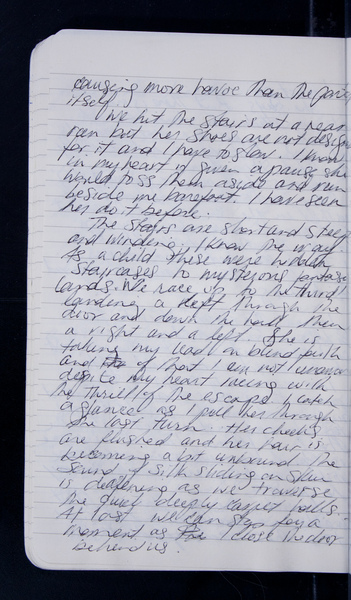 causing more havoc than the panic
itself.
We hit the stairs at a near
run but her shoes are not design
for it and I have to slow. I know
in my heart if given a pause she
would toss them aside and run
beside me barefoot. I have seen
her do it before.
The stairs are short and steep
and winding. I know the way.
As a child these were hidden
staircases to mysterious fantasy
lands. We race up to the third
landing a left through the
door and down the hall, then
a right and a left. She is
taking my lead on blind faith
and of that I am not unaware
despite my heart racing with
the thrill of the escape. I catch
a glance as I pull her through
the last turn. Her cheeks
are flushed and her hair is
becoming a bit unbound. The
sound of silk sliding on skin
is deafening as we traverse
the quiet deeply carpet halls.
At last we can stop for a
moment as I close the door
behind us.